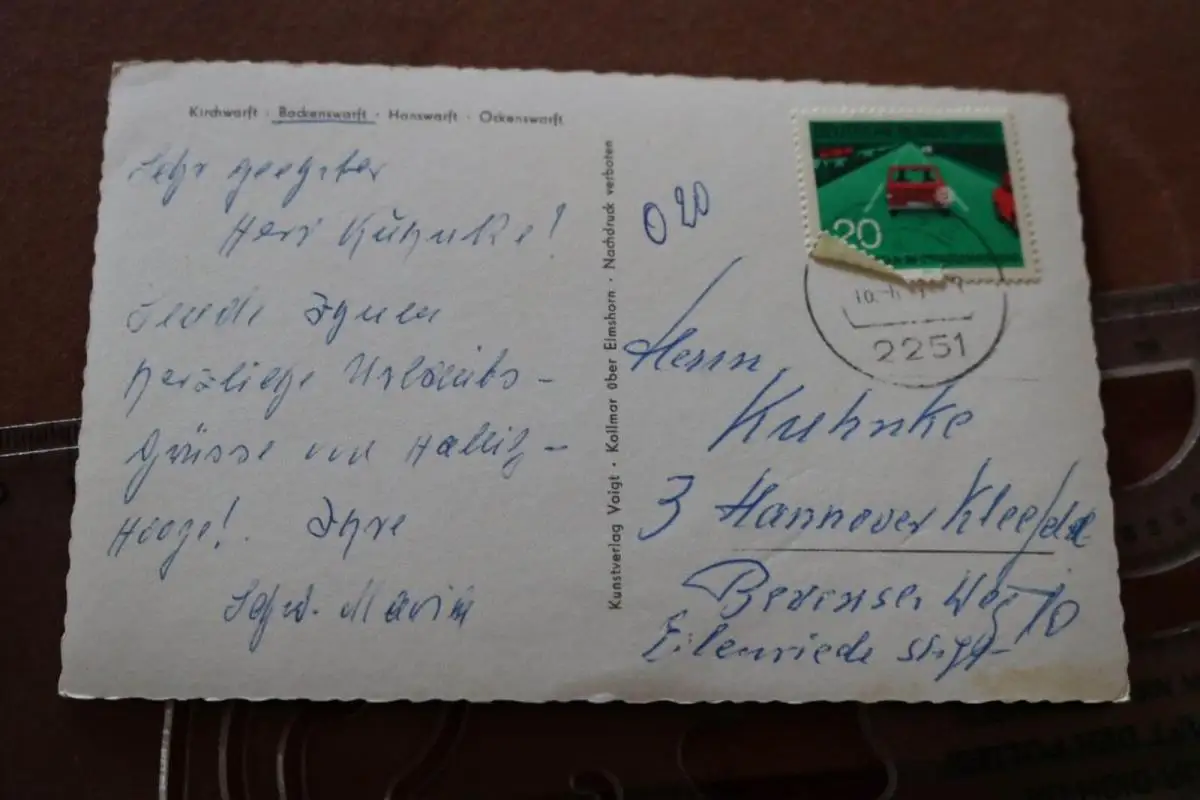 Kirchwarft · Backenswarft · Hanswarft · Ockenswarft
Sehr geehrter
Herr Kuhnke!
Sende Ihnen
herzliche Urlaubs-
Grüsse von Hallig-
Hooge! Ihre
Schw. Maria
Kunstverlag Voigt · Kollmar über Elmshorn · Nachdruck verboten
020
20
2251
Herrn
Kuhnke
3 Hannover Kleefeld
Weg 10
Eilenriede stift